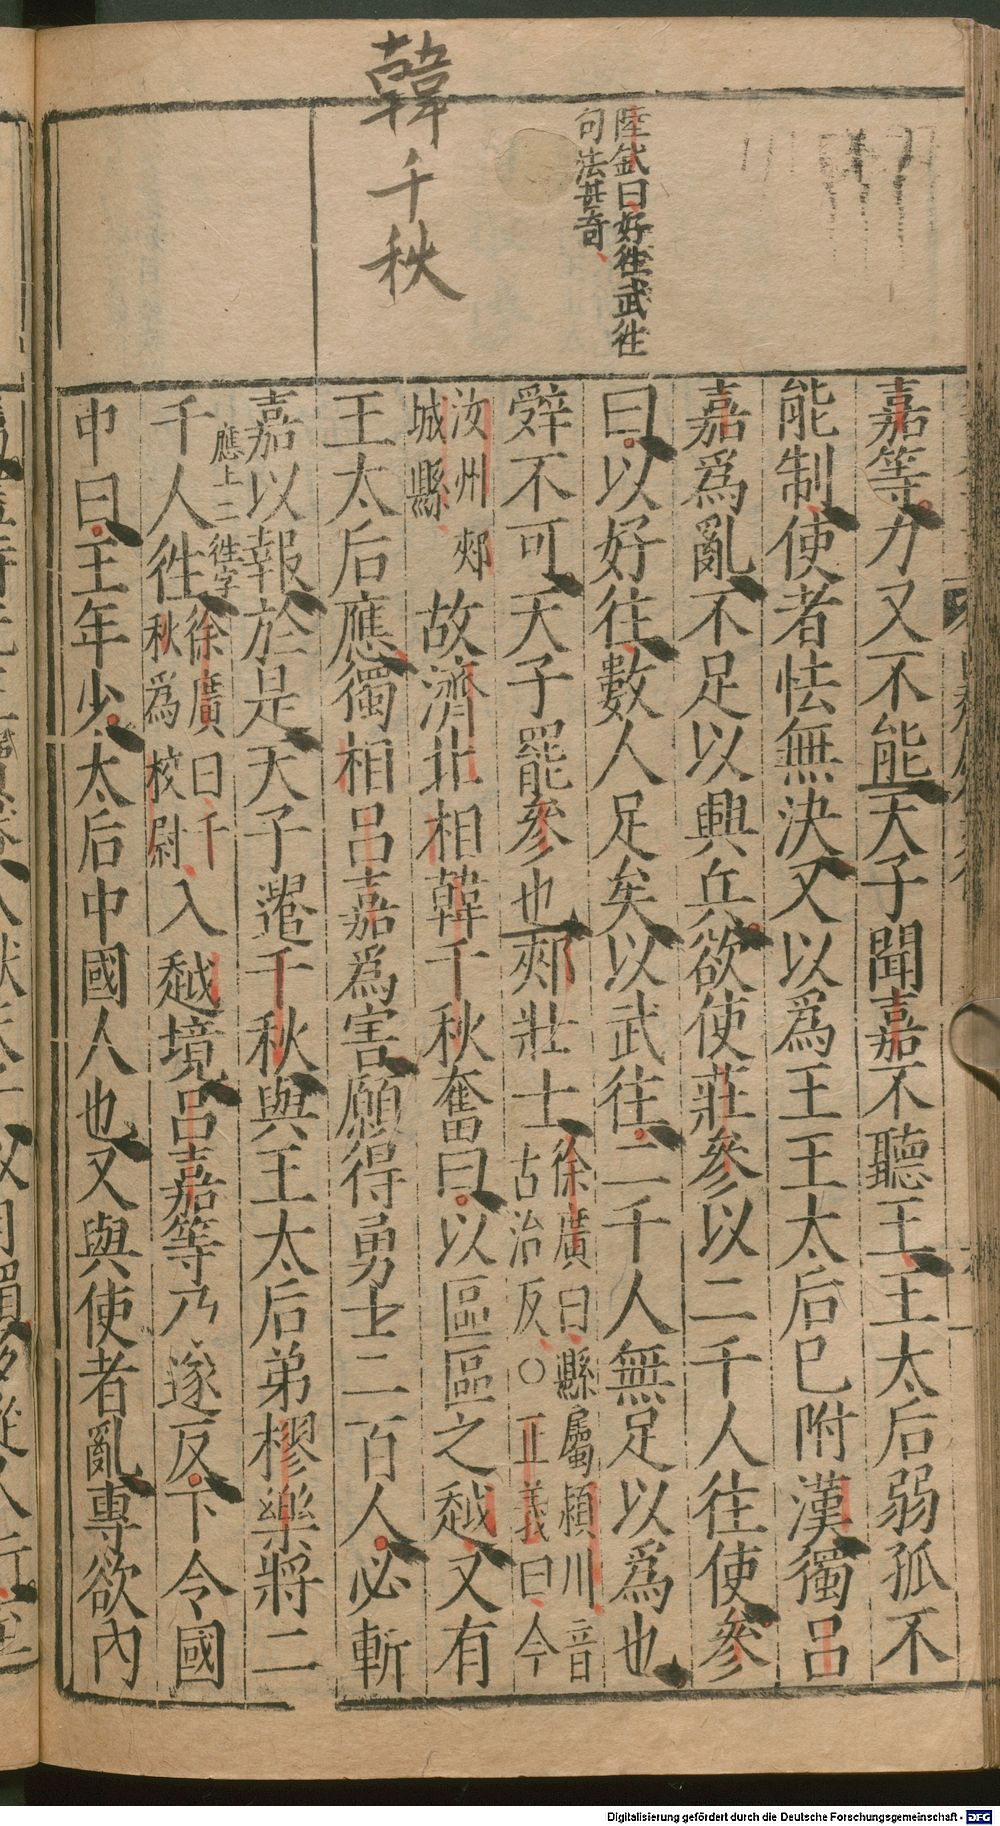 韓千秋
陸鉞曰好徃武徃
句法甚奇
嘉等力又不能天子聞嘉不聽王王太后弱孤不
能制使者怯無決又以爲王王太后已附漢獨呂
嘉爲亂不足以興兵欲使莊參以二千人往使參
曰以好往數人足矣以武往二千人無足以爲也
辤不可天子罷參也郟壯士
徐廣曰縣屬潁川音
古洽反○正義曰今
汝州郟
城縣
故濟北相韓千秋奮曰以區區之越又有
王太后應獨相呂嘉爲害願得勇士二百人必斬
嘉以報於是天子遣千秋與王太后弟樛樂將二
千人徃
應上二徃字
徐廣曰千
秋爲校尉
入越境呂嘉等乃遂反下令國
中曰王年少太后中國人也又與使者亂專欲內
Digitalisierung gefördert durch die Deutsche Forschungsgemeinschaft - DFG